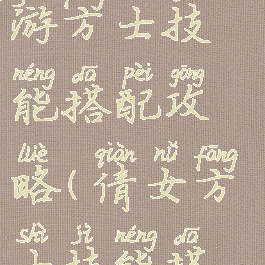 游方士技
néng dā pèi gōng
能搭配攻
lüè qiàn nǚ fāng
略(倩女方
shì jì néng dā
士技能搭